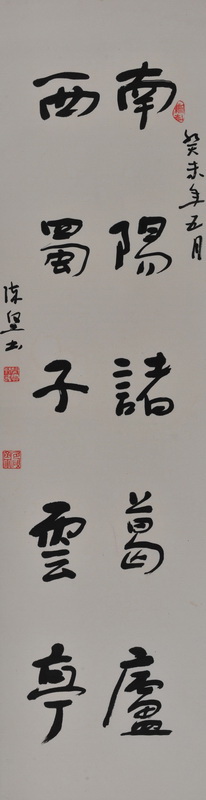 癸未年五月
南陽諸葛廬
西蜀子雲亭
陳堅书